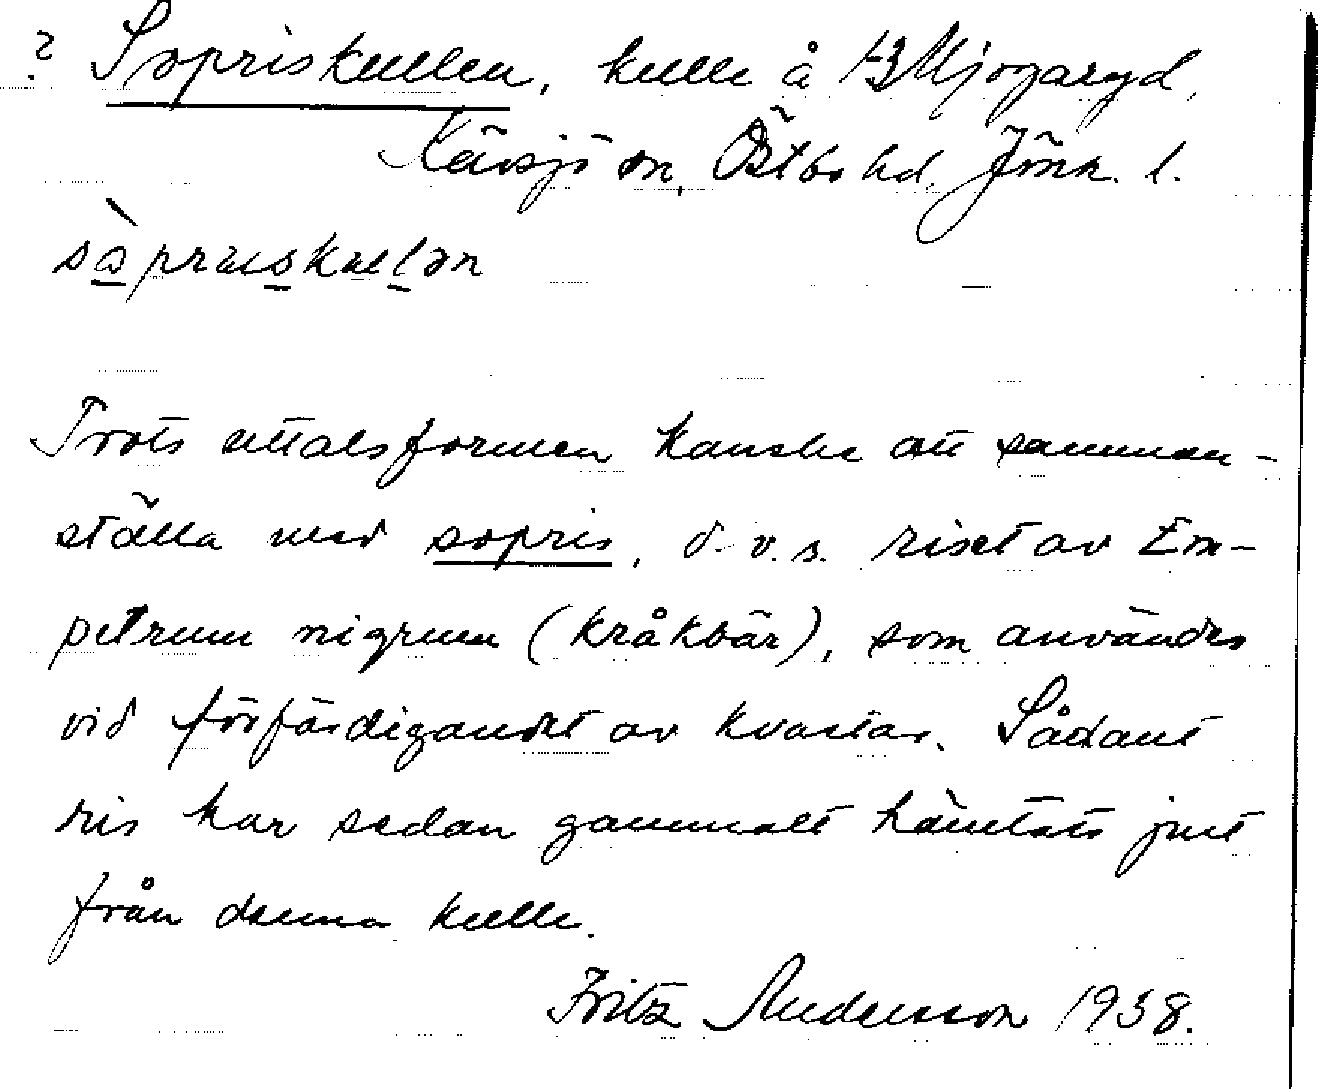 ? Sopriskullen, kulle å Mjogaryd,
Kävsjö sn, Östbo hd, Jönk. l.
sàpriskullən
Trots uttalsformen kanske att samman-
ställa med sopris, d.v.s. riset av Em-
petrum nigrum (kråkbär), som användes
vid förfärdigandet av kvastar. Sådant
ris har sedan gammalt hämtats just
från denna kulle.
Fritz Andersson 1938.